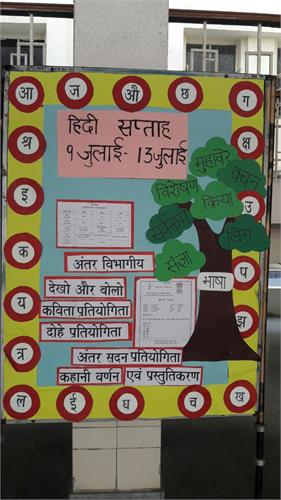 आ ज औ छ ग
श्र
क्ष
इ
उ
क
प
य
झ
त्र
ल ई घ च ख
हिंदी सप्ताह
९ जुलाई - 13 जुलाई
मुहावरे
वचन
विशेषण
क्रिया
सर्वनाम
लिंग
संज्ञा
भाषा
अंतर विभागीय
देखो और बोलो
कविता प्रतियोगिता
दोहे प्रतियोगिता
अंतर सदन प्रतियोगिता
कहानी वर्णन एवं प्रस्तुतिकरण